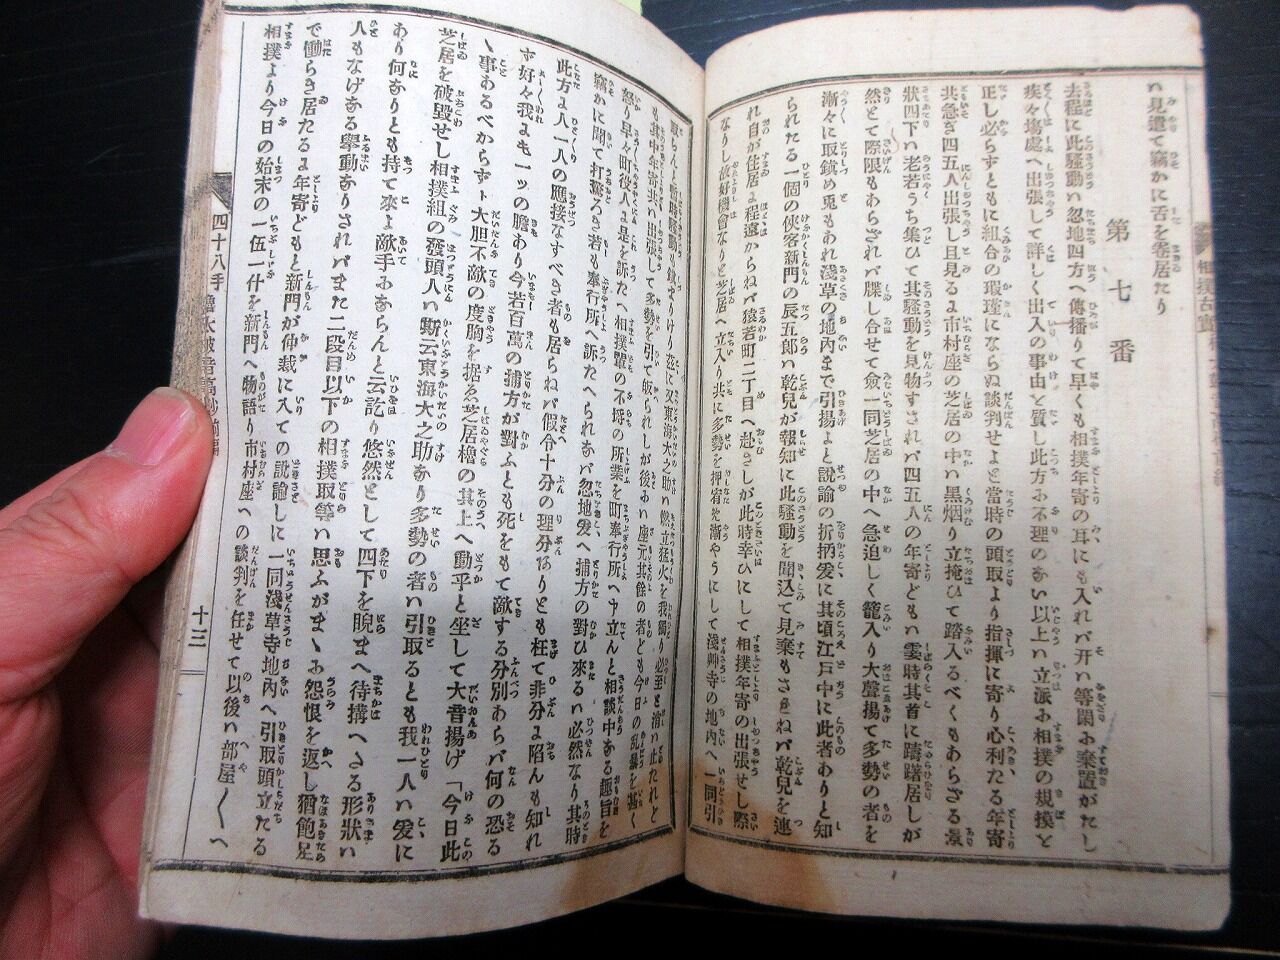 ハ見遣て竊かに舌を卷居たり
第七番
去程に此騷動ハ忽地四方へ傳播りて早くも相撲年寄の耳にも入れバ开ハ等閑ふ棄置がたし
疾々塲處へ出張して詳しく出入の事由を質し此方ふ不理のあい以上ハ立派ふ相撲の規摸と
正し必らずともに組合の瑕瑾にならぬ談判せよと當時の頭取より指揮に寄り心利たる年寄
共急ぎ四五人出張し且見るよ市村座の芝居の中ハ黒烟り立掩ひて踏入るべくもあらざる景
狀四下ハ老若うち集ひて其騷動を見物すされバ四五人の年寄どもハ霎時其首に躊躇居しが
然とて際限もあらざれバ牒し合せて僉一同芝居の中へ急迫しく籠入り大聲揚て多勢の者を
漸々に取鎭め兎もあれ淺草の地內まで引揚よと說諭の折柄爰に其頃江戸中に此者ありと知
られたる一個の俠客新門の辰五郎ハ乾兒が報知に此騷動を聞込て見棄もさきねバ乾兒を連
れ自が住居よ程遠からねバ猿若町二丁目へ赴きしが此時幸ひにして相撲年寄の出張せし際
なりし故好機會なりと芝居へ立入り共に多勢を押宥え漸やうにして淺艸寺の地內へ一同引
も其中年寄共ハ出張して多勢を引て皈られしが後ふハ座元其餘の者ども今日の亂暴を甚く
怒り早々町役人よ是を訴たへ相撲輩の不埒の所業を町奉行所へ申立てんと相談中ある趣旨を
竊かに聞て打驚ろき若も奉行所へ訴たへられあバ忽地爰へ捕方の對ひ來るハ必然なり其時
此方よ人一人の應接なすべき者も居らねバ假令十分の理分ありとも枉て非分よ陷んも知れ
ず好々我よも一ッの膽あり今若百萬の捕方が對ふとも死をもて敵する分別あらバ何の恐る
ヽ事あるべからずト大胆不敵の度胸を据ゑ芝居櫓の其上へ動乎と坐して大音揚げ「今日此
芝居を破毀せし相撲組の發頭人ハ斯云東海大之助あり多勢の者ハ引取るとも我一人ハ爰に
あり何ありとも持て來よ敵手ふあらんと云訖り悠然として四下を睨まへ待搆へさる形狀ハ
人もなげある擧動ありされバまた二段目以下の相撲取等ハ思ふがまヽふ怨恨を返し猶飽足
で働らき居たるよ年寄どもと新門が仲裁に入ての說諭しに一同淺草寺地內へ引取頭立たる
相撲より今日の始末の一伍一什を新門へ物語り市村座への談判を任せて以後ハ部屋〳〵へ
四十八手
十三